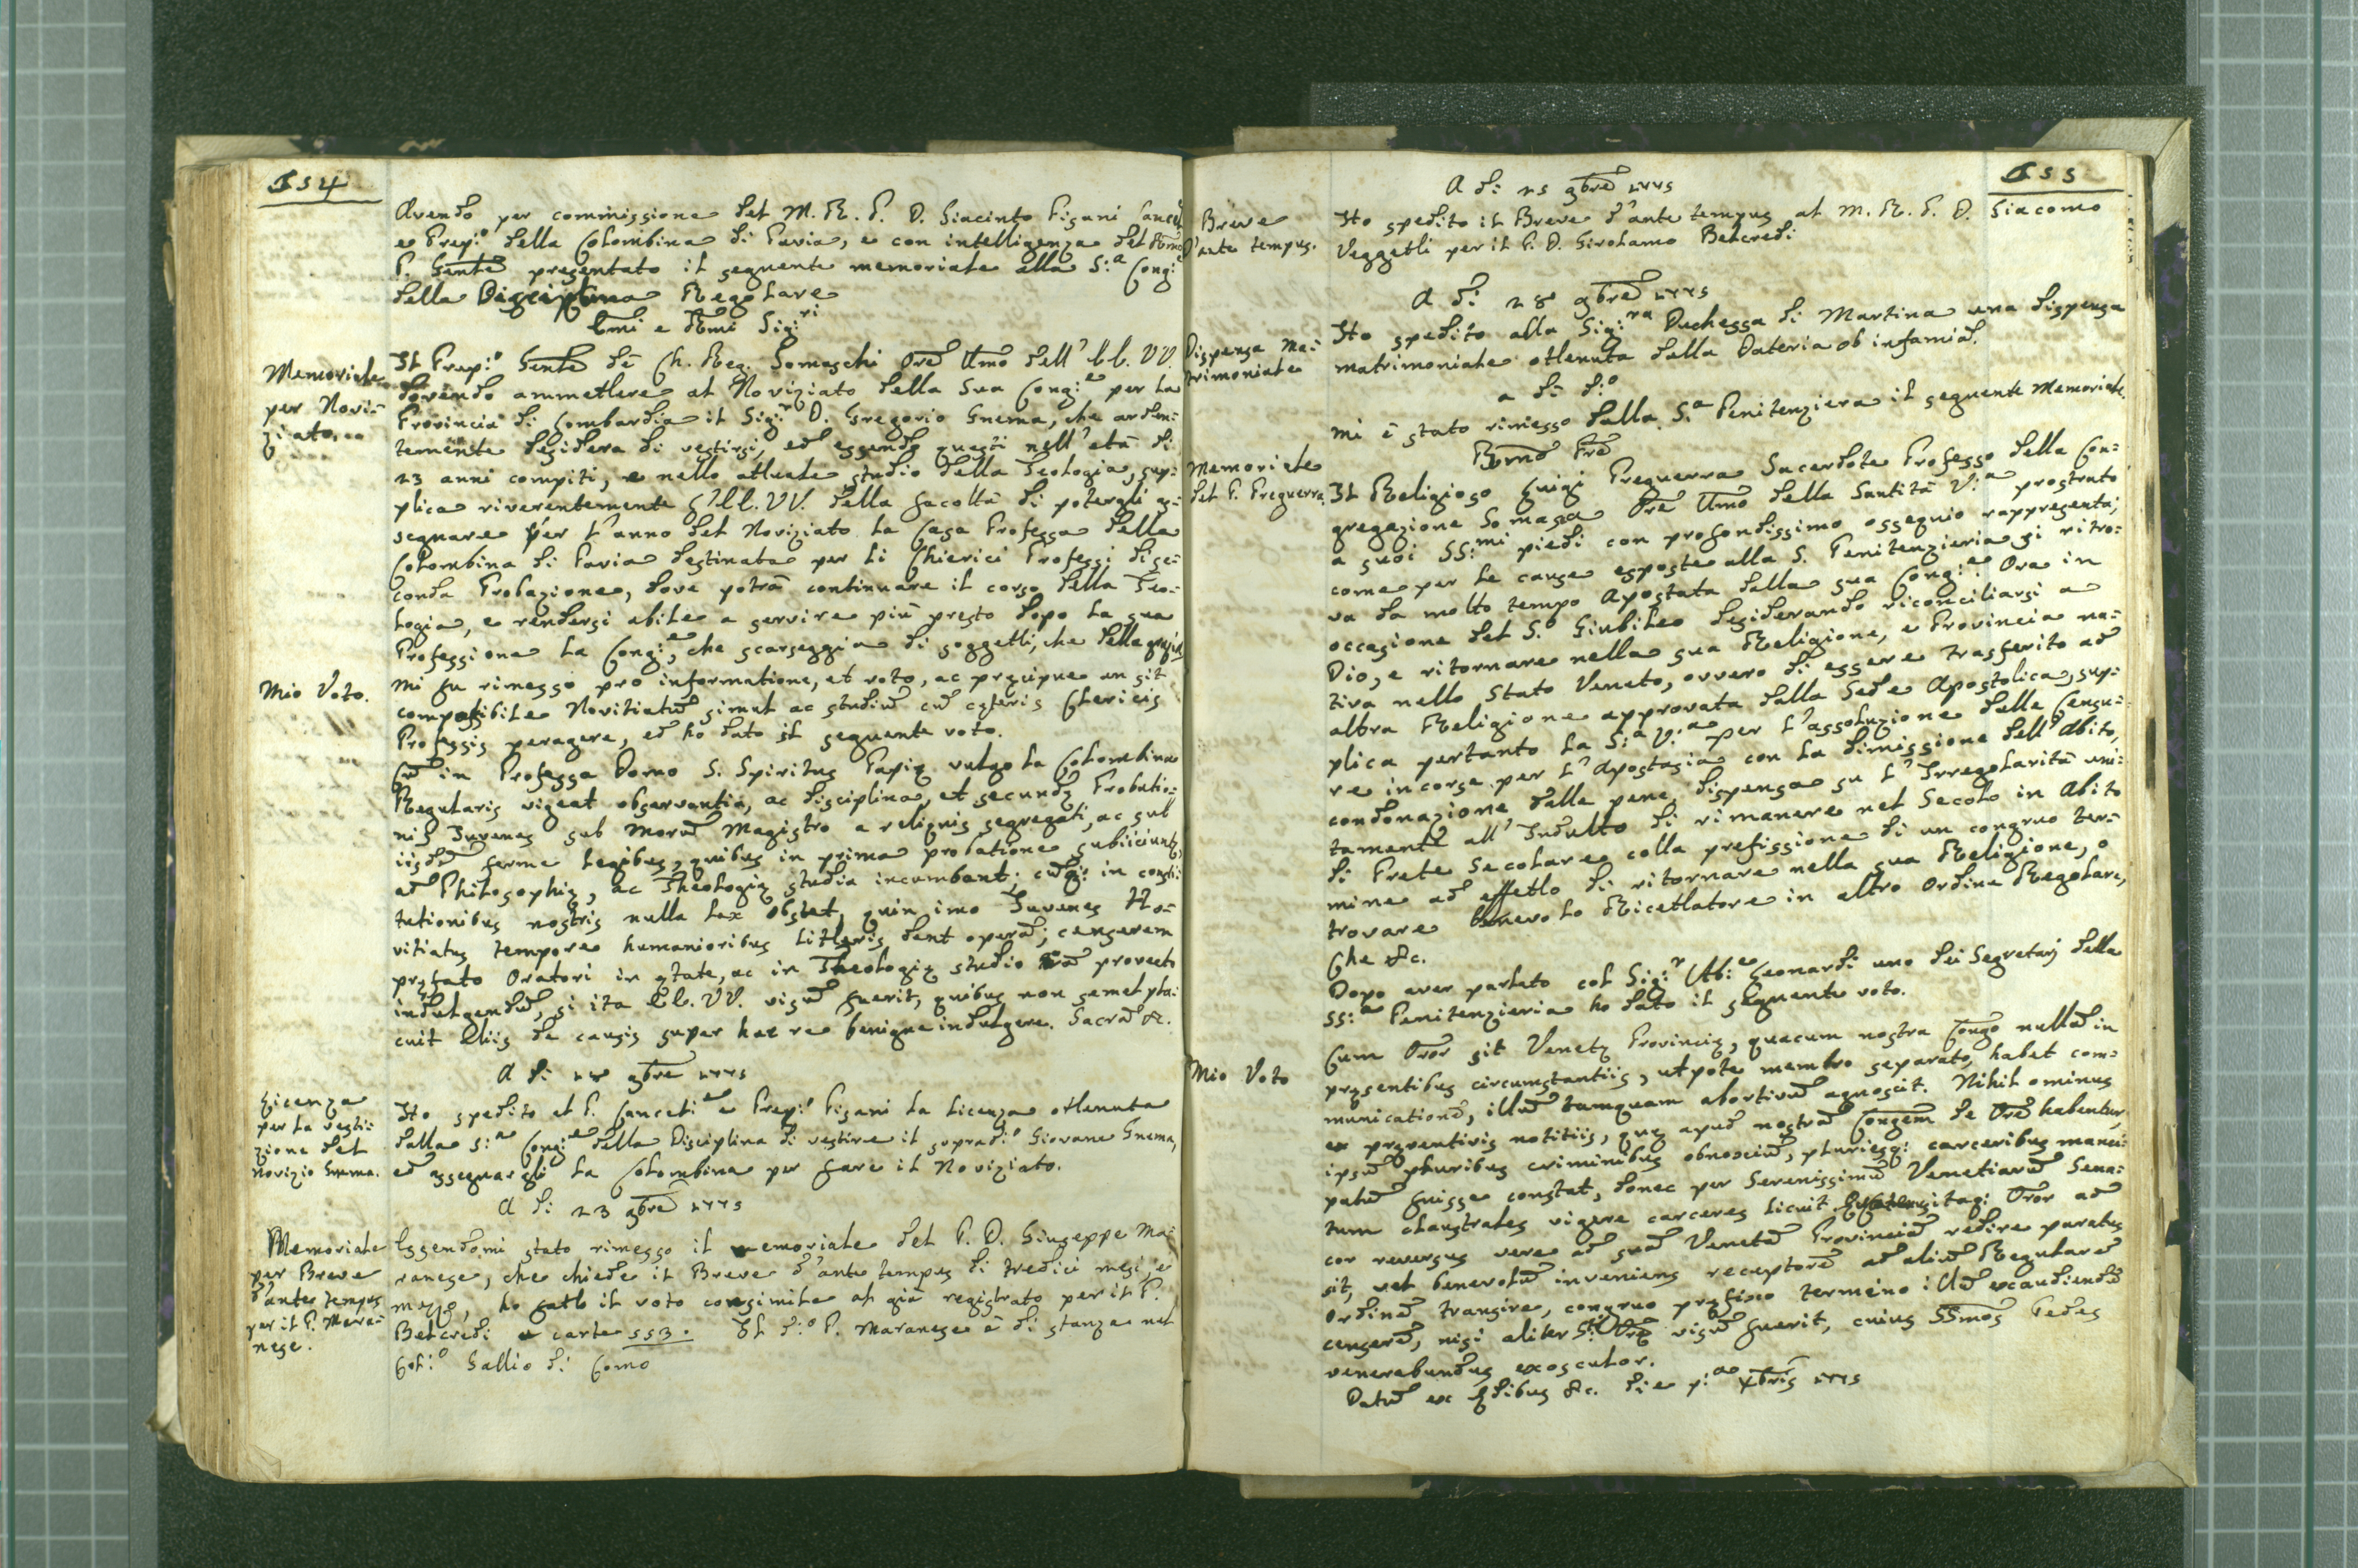 154
Avendo per commissione del M. R. P. D. Giacinto Pisani Cancel.
e Prep:o della Colombina di Pavia, e con intelligenza del Rmo
P. Gnle presentato il seguente memoriale alla S:a Cong:e
della Disciplina Regolare
Emi e Rmi Sig:ri
Memoriale
per Novi=
ziato
Il Prep:o Gnle de Ch. Reg. Somaschi Ore Umo dell' EE. VV.
dovendo ammettere al Noviziato della sua Cong:e per la
Provincia di Lombardia il Sig:r D. Gregorio Gnema, che arden=
temente desidera di vestirsi, ed essendo questi nell' età di
23 anni compiti, e nello attuale studio della Teologia, sup=
plica riverentemente l' EE. VV. della facoltà di potergli as=
segnare per l' anno del Noviziato la Casa Professa della
Colombina di Pavia destinata per li Chierici Professi di se=
conda Probazione, dove potrà continuare il corso della Teo=
logia, e rendersi abile a servire più presto dopo la sua
Professione la Cong:e, che scarseggia di soggetti, che della grazia
Mio Voto.
mi fu rimesso pro informatione, et voto, ac præcipue an sit
compatibile Novitiatũ simul ac studiũ cũ cæteris Clericis
Professis peragere, ed ho dato il seguente voto.
Cũ in Professa Domo S. Spiritus Papiæ vulgo la Colombina
Regularis vigeat observantia, ac disciplina, et secundæ Probatio=
nis Juvenes sub Morũ Magistro a reliquis segregati, ac sub
iisdẽ ferme legibus, quibus in prima probatione subiiciunt,
ad Philosophiæ, ac Theologiæ studia incumbant; cũq: in consti=
tutionibus nostris nulla lex obstet, quin imo Juvenes No=
vitiatus tempore humanioribus litteris dent operã; censerem
præfato Oratori in ætate, ac in Theologiæ studio provecto
indulgendũ, si ita EE. VV. visũ fuerit, quibus non semel pla=
cuit aliis de causis super hac re benigne indulgere. Sacrã &c.
A dì 18 9bre 1775
Licenza
per la vesti=
zione del
Novizio Gnema.
Ho spedito al P. Cancell:e e Prep:o Pisani la licenza ottenuta
dalla S:a Cong:e della Disciplina di vestire il suprad:o Giovane Gnema,
ed assegnargli la Colombina per fare il Noviziato.
A dì 23 9bre 1775
Memoriale
per Breve
d'ante tempus
per il P. Mara=
nese.
Essendomi stato rimesso il memoriale del P. D. Giuseppe Ma=
ranese, che chiede il Breve d'ante tempus di tredici mesi, e
mezzo, ho fatto il voto consimile al già registrato per il P.
Belcredi a carte 153. Il d:o P. Maranese è di stanza nel
Col:o Gallio di Como
155
A dì 25 9bre 1775
Breve
d'ante tempus.
Ho spedito il Breve d'ante tempus al M. R. P. D. Giacomo
Vezzetli per il P. D. Girolamo Belcredi
A dì 28 9bre 1775
Dispensa Ma=
trimoniale
Ho spedito alla Sig:ra Duchessa di Martina una dispensa
matrimoniale ottenuta dalla Dateria ob infamiã.
a dì d:o
mi è stato rimesso dalla S:a Penitenziera il seguente Memoriale
Bmo Pre
Memoriale
del P. Preguerra.
Il Religioso Luigi Preguerra Sacerdote Professo della Con=
gregazione Somasca Ore Umo della Santità V:a prostrato
a suoi SS:mi piedi con profondissimo ossequio rappresenta,
come per le cause esposte alla S. Penitenzieria si ritro=
va da molto tempo Apostata dalla sua Cong:e. Ora in
occasione del S:o Giubileo desiderando riconciliarsi a
Dio, e ritornare nella sua Religione, e Provincia na=
tiva nello Stato Veneto, ovvero di essere trasferito ad
altra Religione approvata dalla Sede Apostolica, sup=
plica pertanto la S:a V:a per l' assoluzione delle Censu=
re incorse per l' Apostasia con la dimissione dell' Abito,
condonazione delle pene, dispensa su l' Irregolarità uni=
tamente all' Indulto di rimanere nel Secolo in Abito
di Prete Secolare colla prefissione di un congruo ter=
mine ad effetto di ritornare nella sua Religione, o
trovare benevolo Ricettatore in altro Ordine Regolare,
Che &c.
Dopo aver parlato col Sig:r Ab:e Leonardi uno dei Segretarj della
SS:a Penitenzieria ho dato il seguente voto.
Mio Voto
Cum Oror sit Venetæ Provinciæ, quacum nostra Congo nullã in
præsentibus circumstantiis, utpote membro separato, habet com=
municationẽ, illũ tamquam abortivũ agnoscit. Nihil ominus
ex præventivis notitiis, quæ apud nostrã Congem de Ore habentur,
ipsũ pluribus criminibus obnoxiũ, pluriesq: carceribus manci=
patũ fuisse constat, donec per Serenissimũ Venetiarũ Sena=
tum claustrales vigere carceres licuit. itaq: Oror ad
cor reversus vere ad suã Venetã Provinciã redire paratus
sit, vel benevolũ inveniens receptorẽ ad aliũ Regularẽ
Ordinẽ transire, congruo præfixo termino illũ exaudiendũ
censerẽ, nisi aliter visũ fuerit, cuius SSmos Pedes
venerabundus exosculor.
Datũ ex Ædibus &c. die p:a Xbris 1775